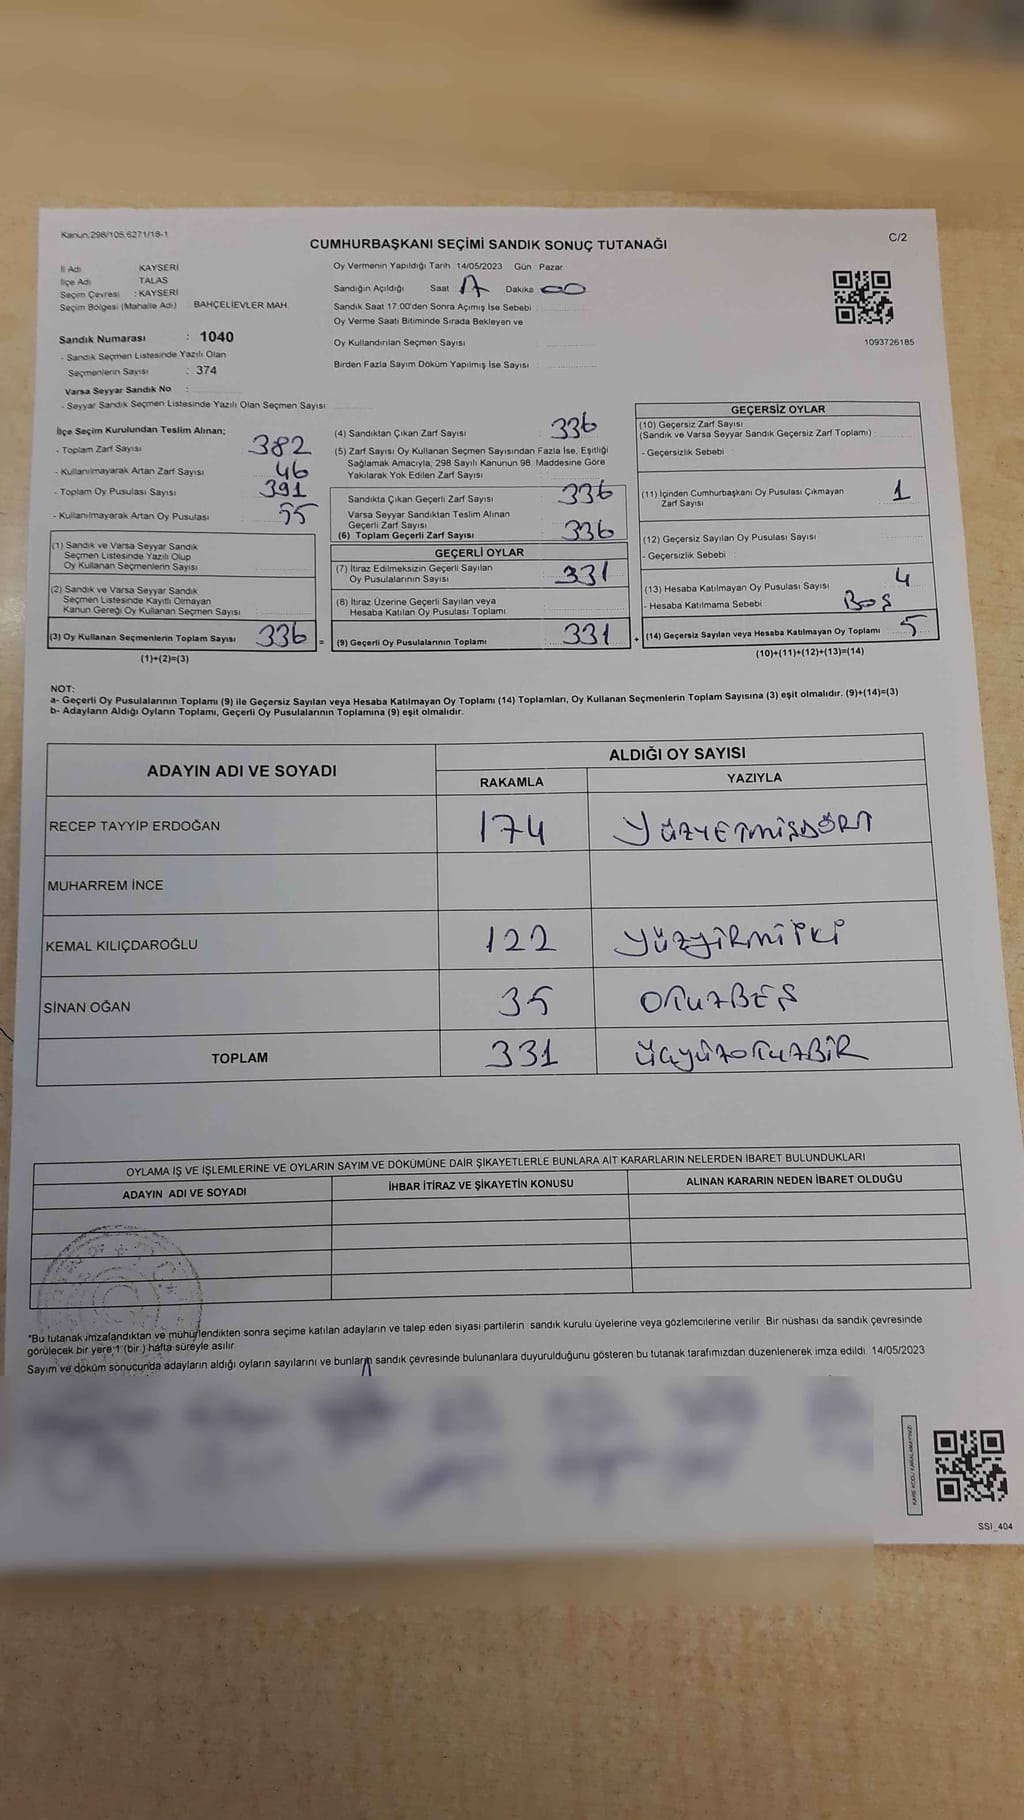 Kanun:298/105,6271/18-1
CUMHURBAŞKANI SEÇİMİ SANDIK SONUÇ TUTANAĞI
C/2
İl Adı KAYSERİ
İlçe Adı TALAS
Seçim Çevresi : KAYSERİ
Seçim Bölgesi (Mahalle Adı) BAHÇELİEVLER MAH.
Sandık Numarası : 1040
- Sandık Seçmen Listesinde Yazılı Olan
Seçmenlerin Sayısı : 374
Varsa Seyyar Sandık No :
- Seyyar Sandık Seçmen Listesinde Yazılı Olan Seçmen Sayısı
Oy Vermenin Yapıldığı Tarih 14/05/2023 Gün Pazar
Sandığın Açıldığı Saat 17 Dakika 00
Sandık Saat 17.00'den Sonra Açımış İse Sebebi
Oy Verme Saati Bitiminde Sırada Bekleyen ve
Oy Kullandırılan Seçmen Sayısı
Birden Fazla Sayım Döküm Yapılmış İse Sayısı :
1093726185
İlçe Seçim Kurulundan Teslim Alınan;
- Toplam Zarf Sayısı 382
- Kullanılmayarak Artan Zarf Sayısı 46
- Toplam Oy Pusulası Sayısı 391
- Kullanılmayarak Artan Oy Pusulası 55
(1) Sandık ve Varsa Seyyar Sandık
Seçmen Listesinde Yazılı Olup
Oy Kullanan Seçmenlerin Sayısı
(2) Sandık ve Varsa Seyyar Sandık
Seçmen Listesinde Kayıtlı Olmayan
Kanun Gereği Oy Kullanan Seçmen Sayısı
(3) Oy Kullanan Seçmenlerin Toplam Sayısı 336 =
(1)+(2)=(3)
(4) Sandıktan Çıkan Zarf Sayısı 336
(5) Zarf Sayısı Oy Kullanan Seçmen Sayısından Fazla İse, Eşitliği
Sağlamak Amacıyla, 298 Sayılı Kanunun 98. Maddesine Göre
Yakılarak Yok Edilen Zarf Sayısı
Sandıkta Çıkan Geçerli Zarf Sayısı 336
Varsa Seyyar Sandıktan Teslim Alınan
Geçerli Zarf Sayısı
(6) Toplam Geçerli Zarf Sayısı 336
GEÇERLİ OYLAR
(7) İtiraz Edilmeksizin Geçerli Sayılan
Oy Pusulalarının Sayısı 331
(8) İtiraz Üzerine Geçerli Sayılan veya
Hesaba Katılan Oy Pusulası Toplamı
(9) Geçerli Oy Pusulalarının Toplamı 331 +
GEÇERSİZ OYLAR
(10) Geçersiz Zarf Sayısı
(Sandık ve Varsa Seyyar Sandık Geçersiz Zarf Toplamı) :
- Geçersizlik Sebebi
(11) İçinden Cumhurbaşkanı Oy Pusulası Çıkmayan
Zarf Sayısı 1
(12) Geçersiz Sayılan Oy Pusulası Sayısı
- Geçersizlik Sebebi :
(13) Hesaba Katılmayan Oy Pusulası Sayısı 4
- Hesaba Katılmama Sebebi : BOŞ
(14) Geçersiz Sayılan veya Hesaba Katılmayan Oy Toplamı 5
(10)+(11)+(12)+(13)=(14)
NOT:
a- Geçerli Oy Pusulalarının Toplamı (9) ile Geçersiz Sayılan veya Hesaba Katılmayan Oy Toplamı (14) Toplamları, Oy Kullanan Seçmenlerin Toplam Sayısına (3) eşit olmalıdır. (9)+(14)=(3)
b- Adayların Aldığı Oyların Toplamı, Geçerli Oy Pusulalarının Toplamına (9) eşit olmalıdır.
ADAYIN ADI VE SOYADI
ALDIĞI OY SAYISI
RAKAMLA YAZIYLA
RECEP TAYYİP ERDOĞAN 174 YÜZYETMİŞDÖRT
MUHARREM İNCE
KEMAL KILIÇDAROĞLU 122 YÜZYİRMİİKİ
SİNAN OĞAN 35 OTUZBEŞ
TOPLAM 331 ÜÇYÜZOTUZBİR
OYLAMA İŞ VE İŞLEMLERİNE VE OYLARIN SAYIM VE DÖKÜMÜNE DAİR ŞİKAYETLERLE BUNLARA AİT KARARLARIN NELERDEN İBARET BULUNDUKLARI
ADAYIN ADI VE SOYADI İHBAR İTİRAZ VE ŞİKAYETİN KONUSU ALINAN KARARIN NEDEN İBARET OLDUĞU
*Bu tutanak imzalandıktan ve mühürlendikten sonra seçime katılan adayların ve talep eden siyasi partilerin sandık kurulu üyelerine veya gözlemcilerine verilir. Bir nüshası da sandık çevresinde
görülecek bir yere 1 (bir ) hafta süreyle asılır.
Sayım ve döküm sonucunda adayların aldığı oyların sayılarını ve bunların sandık çevresinde bulunanlara duyurulduğunu gösteren bu tutanak tarafımızdan düzenlenerek imza edildi. 14/05/2023
SSI_404